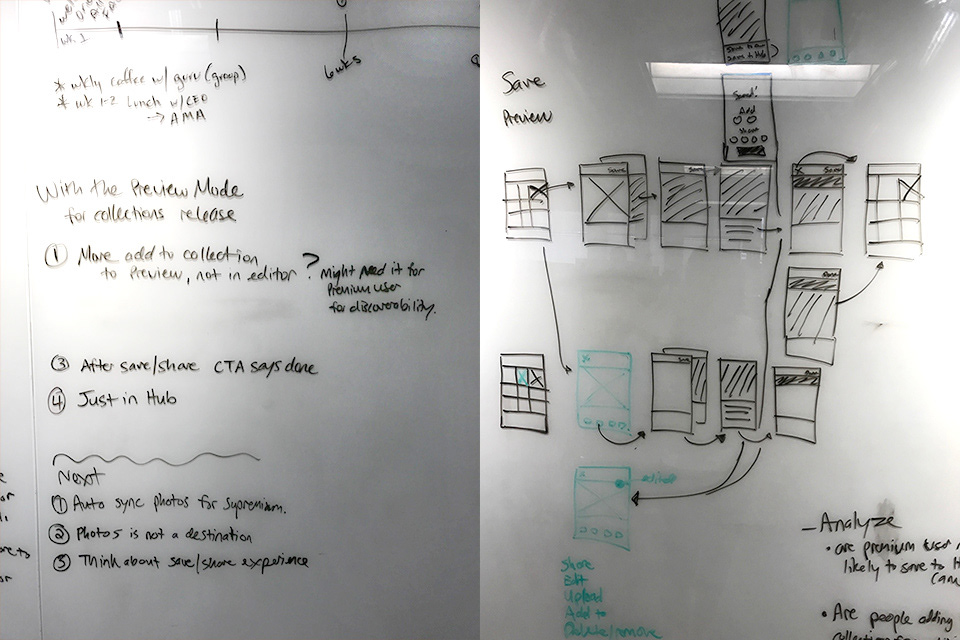 wk. 1
6wks
* wkly coffee w/ guru (group)
* wk 1-2 lunch w/CEO
→ AMA
With the Preview Mode
for collections release
① Move add to collection
to Preview, not in editor ?
Might Need it for
Premium user
for discoverability.
③ After save/share CTA says done
④ Just in Hub
Next
① Auto sync photos for
② Photos is not a destination
③ Think about save/share experience
Save
Preview
Saved!
Add
Share
Save
Save
editor
Share
Edit
Upload
Add to
Delete/remove
- Analyze
• are premium user
likely to save to
• Are people adding